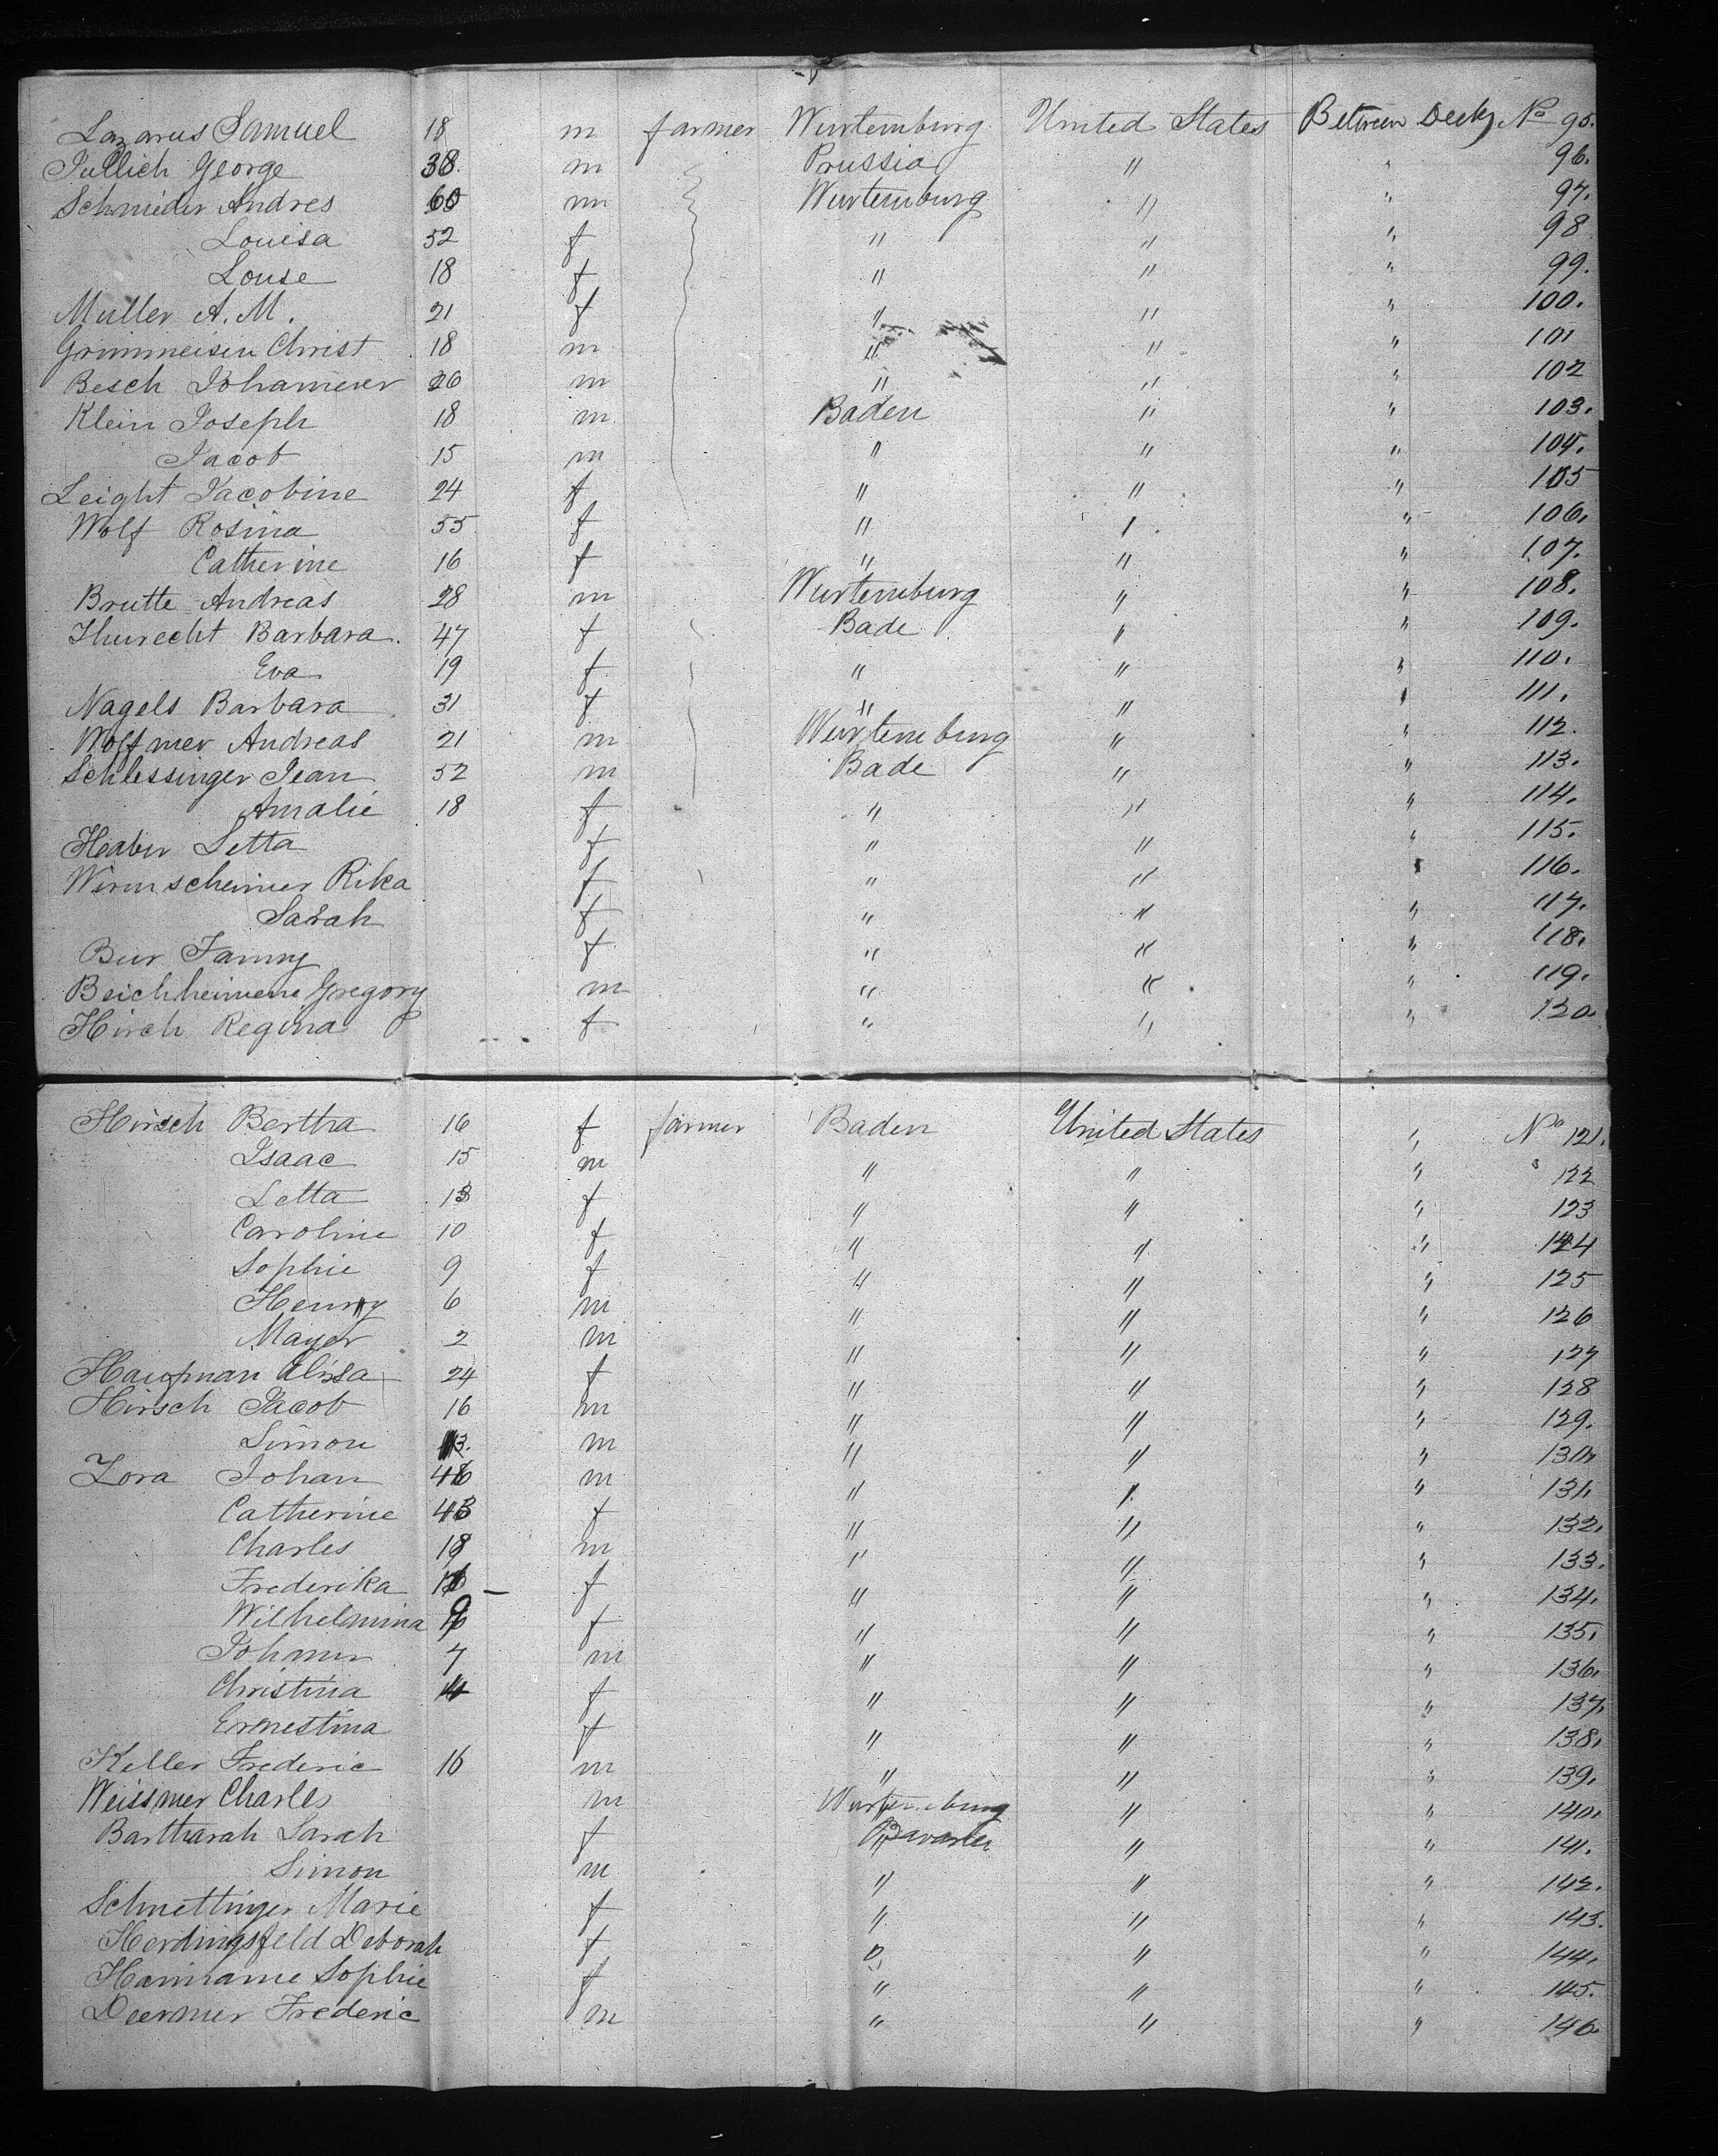 Lazarus Samuel 18 m farmer Wurtemburg United States Between Decks No 95.
Jullich George 38. m Prussia " " 96.
Schmieder Andres 60 m Wurtemburg " " 97.
Louisa 52 f " " " 98
Louse 18 f " " " 99.
Muller A. M. 21 f " " " 100.
Grimmeisen Christ 18 m " " " 101
Besch 26 m " " " 102
Klein Joseph 18 m Baden " " 103.
Jacob 15 m " " " 104.
Leight Jacobine 24 f " " " 105
Wolf Rosina 55 f " " " 106.
Catherine 16 f " " " 107.
Brutte Andreas 28 m Wurtemburg " " 108.
Barbara. 47 f Bade " " 109.
Eva 19 f " " " 110.
Nagels Barbara 31 f " " " 111.
Wolfmer Andreas 21 m Wurtemburg " " 112.
Schlessinger Jean 52 m Bade " " 113.
Amalie 18 f " " " 114.
Haber Letta f " " " 115.
Rika f " " " 116.
Sarah f " " " 117.
Bur Fanny f " " " 118.
Gregory m " " " 119.
Hirsch Regina f " " " 120.
Hirsch Bertha 16 f farmer Baden United States " No 121.
Isaac 15 m " " " 122
Letta 13 f " " " 123
Caroline 10 f " " " 124
Sophie 9 f " " " 125
Henry 6 m " " " 126
Mayer 2 m " " " 127
Haufman Elisa 24 f " " " 128
Hirsch Jacob 16 m " " " 129.
Simon 13. m " " " 130.
Zora Johan 46 m " " " 131.
Catherine 43 f " " " 132.
Charles 18 m " " " 133.
Frederika f " " " 134.
Wilhelmina 9 f " " " 135.
Johann 7 m " " " 136.
Christina 4 f " " " 137.
Ernestina f " " " 138.
Keller Frederic 16 m " " " 139.
Weissmer Charles m Wurtemburg " " 140.
Bartharah Sarah f Bavaria " " 141.
Simon m " " " 142.
Schnettinger Marie f " " " 143.
Herdingsfeld Deborah f " " " 144.
Hanname Sophie f " " " 145.
Deermer Frederic m " " " 146.